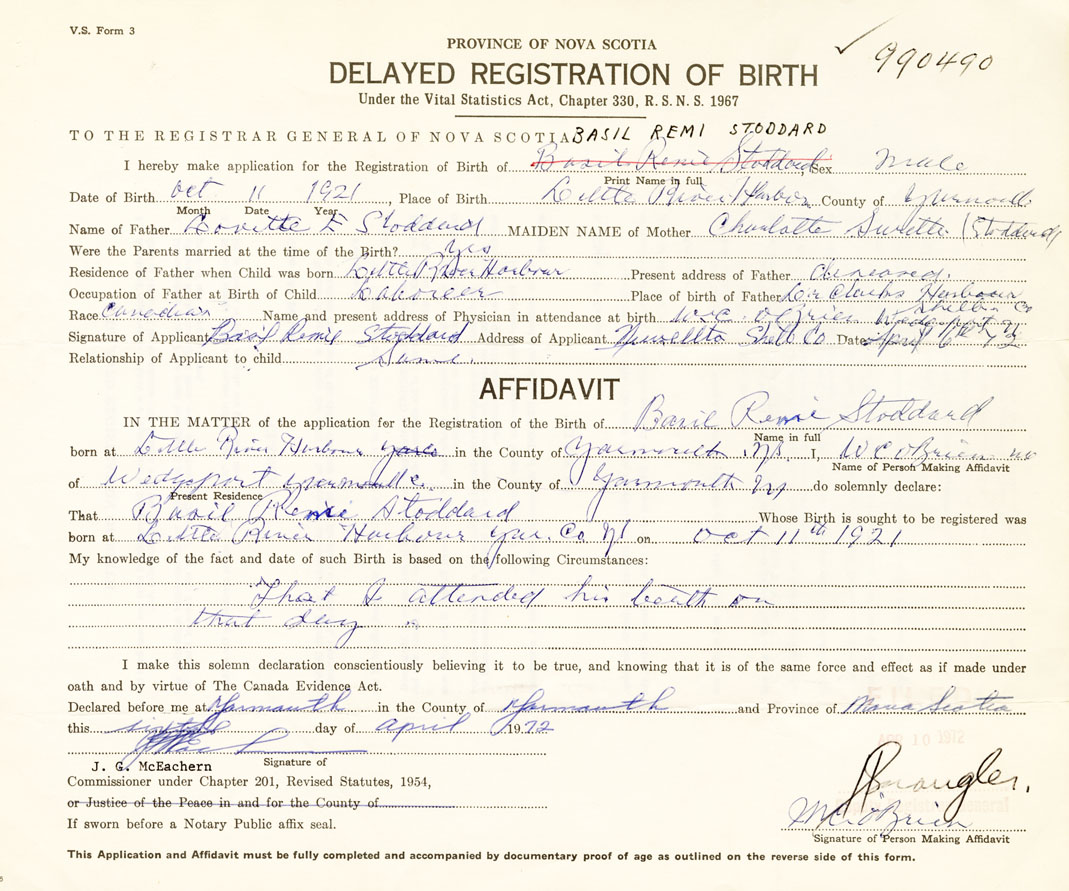 V.S. Form 3
PROVINCE OF NOVA SCOTIA
990490
DELAYED REGISTRATION OF BIRTH
Under the Vital Statistics Act, Chapter 330, R.S.N.S. 1967
TO THE REGISTRAR GENERAL OF NOVA SCOTIA BASIL REMI STODDARD
I hereby make application for the Registration of Birth of Basil Remie Stoddard, Sex Male
Print Name in full
Date of Birth Oct 11 1921, Place of Birth Little River Harbour County of Yarmouth
Month Date Year
Name of Father E Stoddard MAIDEN NAME of Mother Charlotte (Stoddard)
Were the Parents married at the time of the Birth? Yes
Residence of Father when Child was born Little River Harbour Present address of Father deceased.
Occupation of Father at Birth of Child Laborer Place of birth of Father Clarks Harbour
Shelb Co
Race Canadian Name and present address of Physician in attendance at birth W.C. O'Brien Wedgeport NS
Signature of Applicant Basil Remie Stoddard Address of Applicant Newellton Shelb Co Date April 6th 72
Relationship of Applicant to child Same.
AFFIDAVIT
IN THE MATTER of the application for the Registration of the Birth of Basil Remie Stoddard
Name in full
born at Little River Harbour in the County of Yarmouth NS, I, W C O'Brien
Name of Person Making Affidavit
of Wedgeport Yarmouth Co. in the County of Yarmouth NS do solemnly declare:
Present Residence
That Basil Remie Stoddard Whose Birth is sought to be registered was
born at Little River Harbour Yar. Co NS on Oct 11th 1921
My knowledge of the fact and date of such Birth is based on the following Circumstances:
That I attended his birth on
that day
I make this solemn declaration conscientiously believing it to be true, and knowing that it is of the same force and effect as if made under
oath and by virtue of The Canada Evidence Act.
Declared before me at Yarmouth in the County of Yarmouth and Province of Nova Scotia
this sixth day of April 1972
APR 10 1972
J. G. McEachern Signature of
Commissioner under Chapter 201, Revised Statutes, 1954,
or Justice of the Peace in and for the County of
If sworn before a Notary Public affix seal.
W C O'Brien
Signature of Person Making Affidavit
This Application and Affidavit must be fully completed and accompanied by documentary proof of age as outlined on the reverse side of this form.